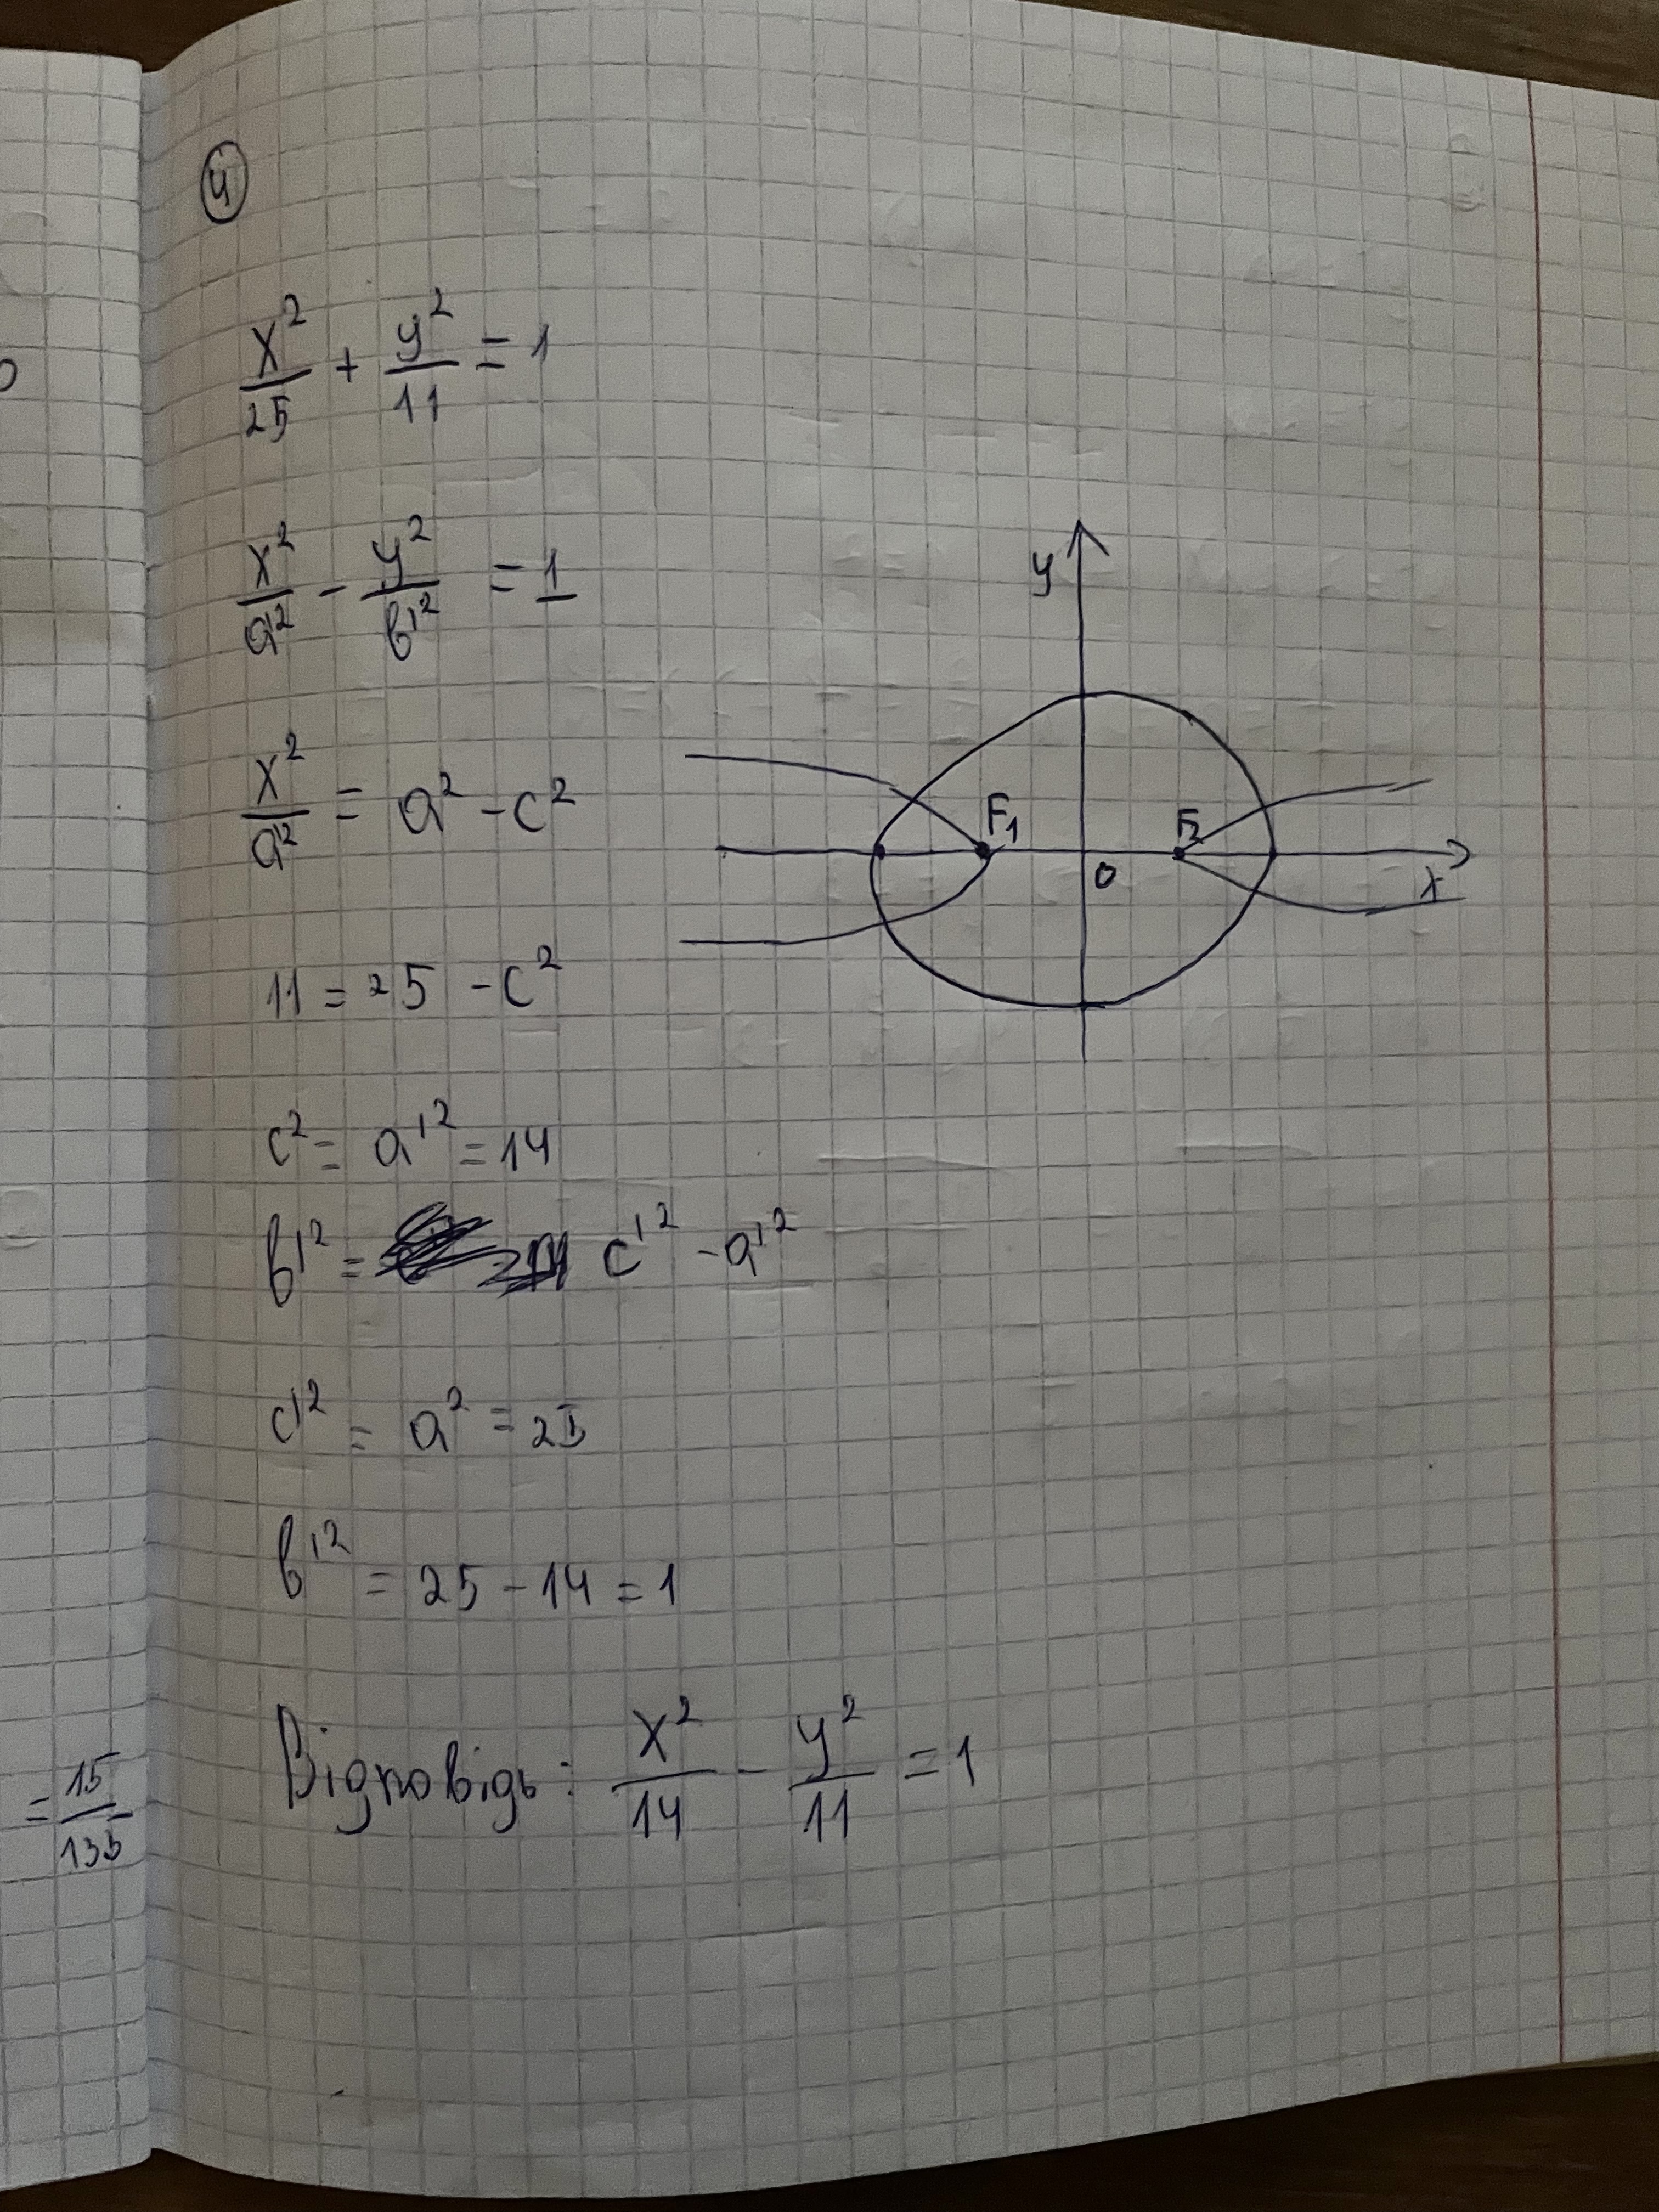 4
x²/25 + y²/11 = 1
x²/a'² - y²/b'² = 1
x²/a'² = a² - c²
11 = 25 - c²
c² = a'² = 14
b'² = c'² - a'²
c'² = a² = 25
b'² = 25 - 14 = 1
Відповідь: x²/14 - y²/11 = 1
y
F₁
F₂
0
x
= 15/135